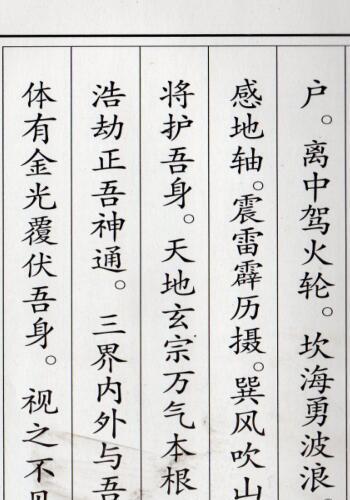 户。离中驾火轮。坎海勇波浪。
感地轴。震雷霹历摄。巽风吹山
将护吾身。天地玄宗万气本根
浩劫正吾神通。三界内外与吾
体有金光覆伏吾身。视之不见